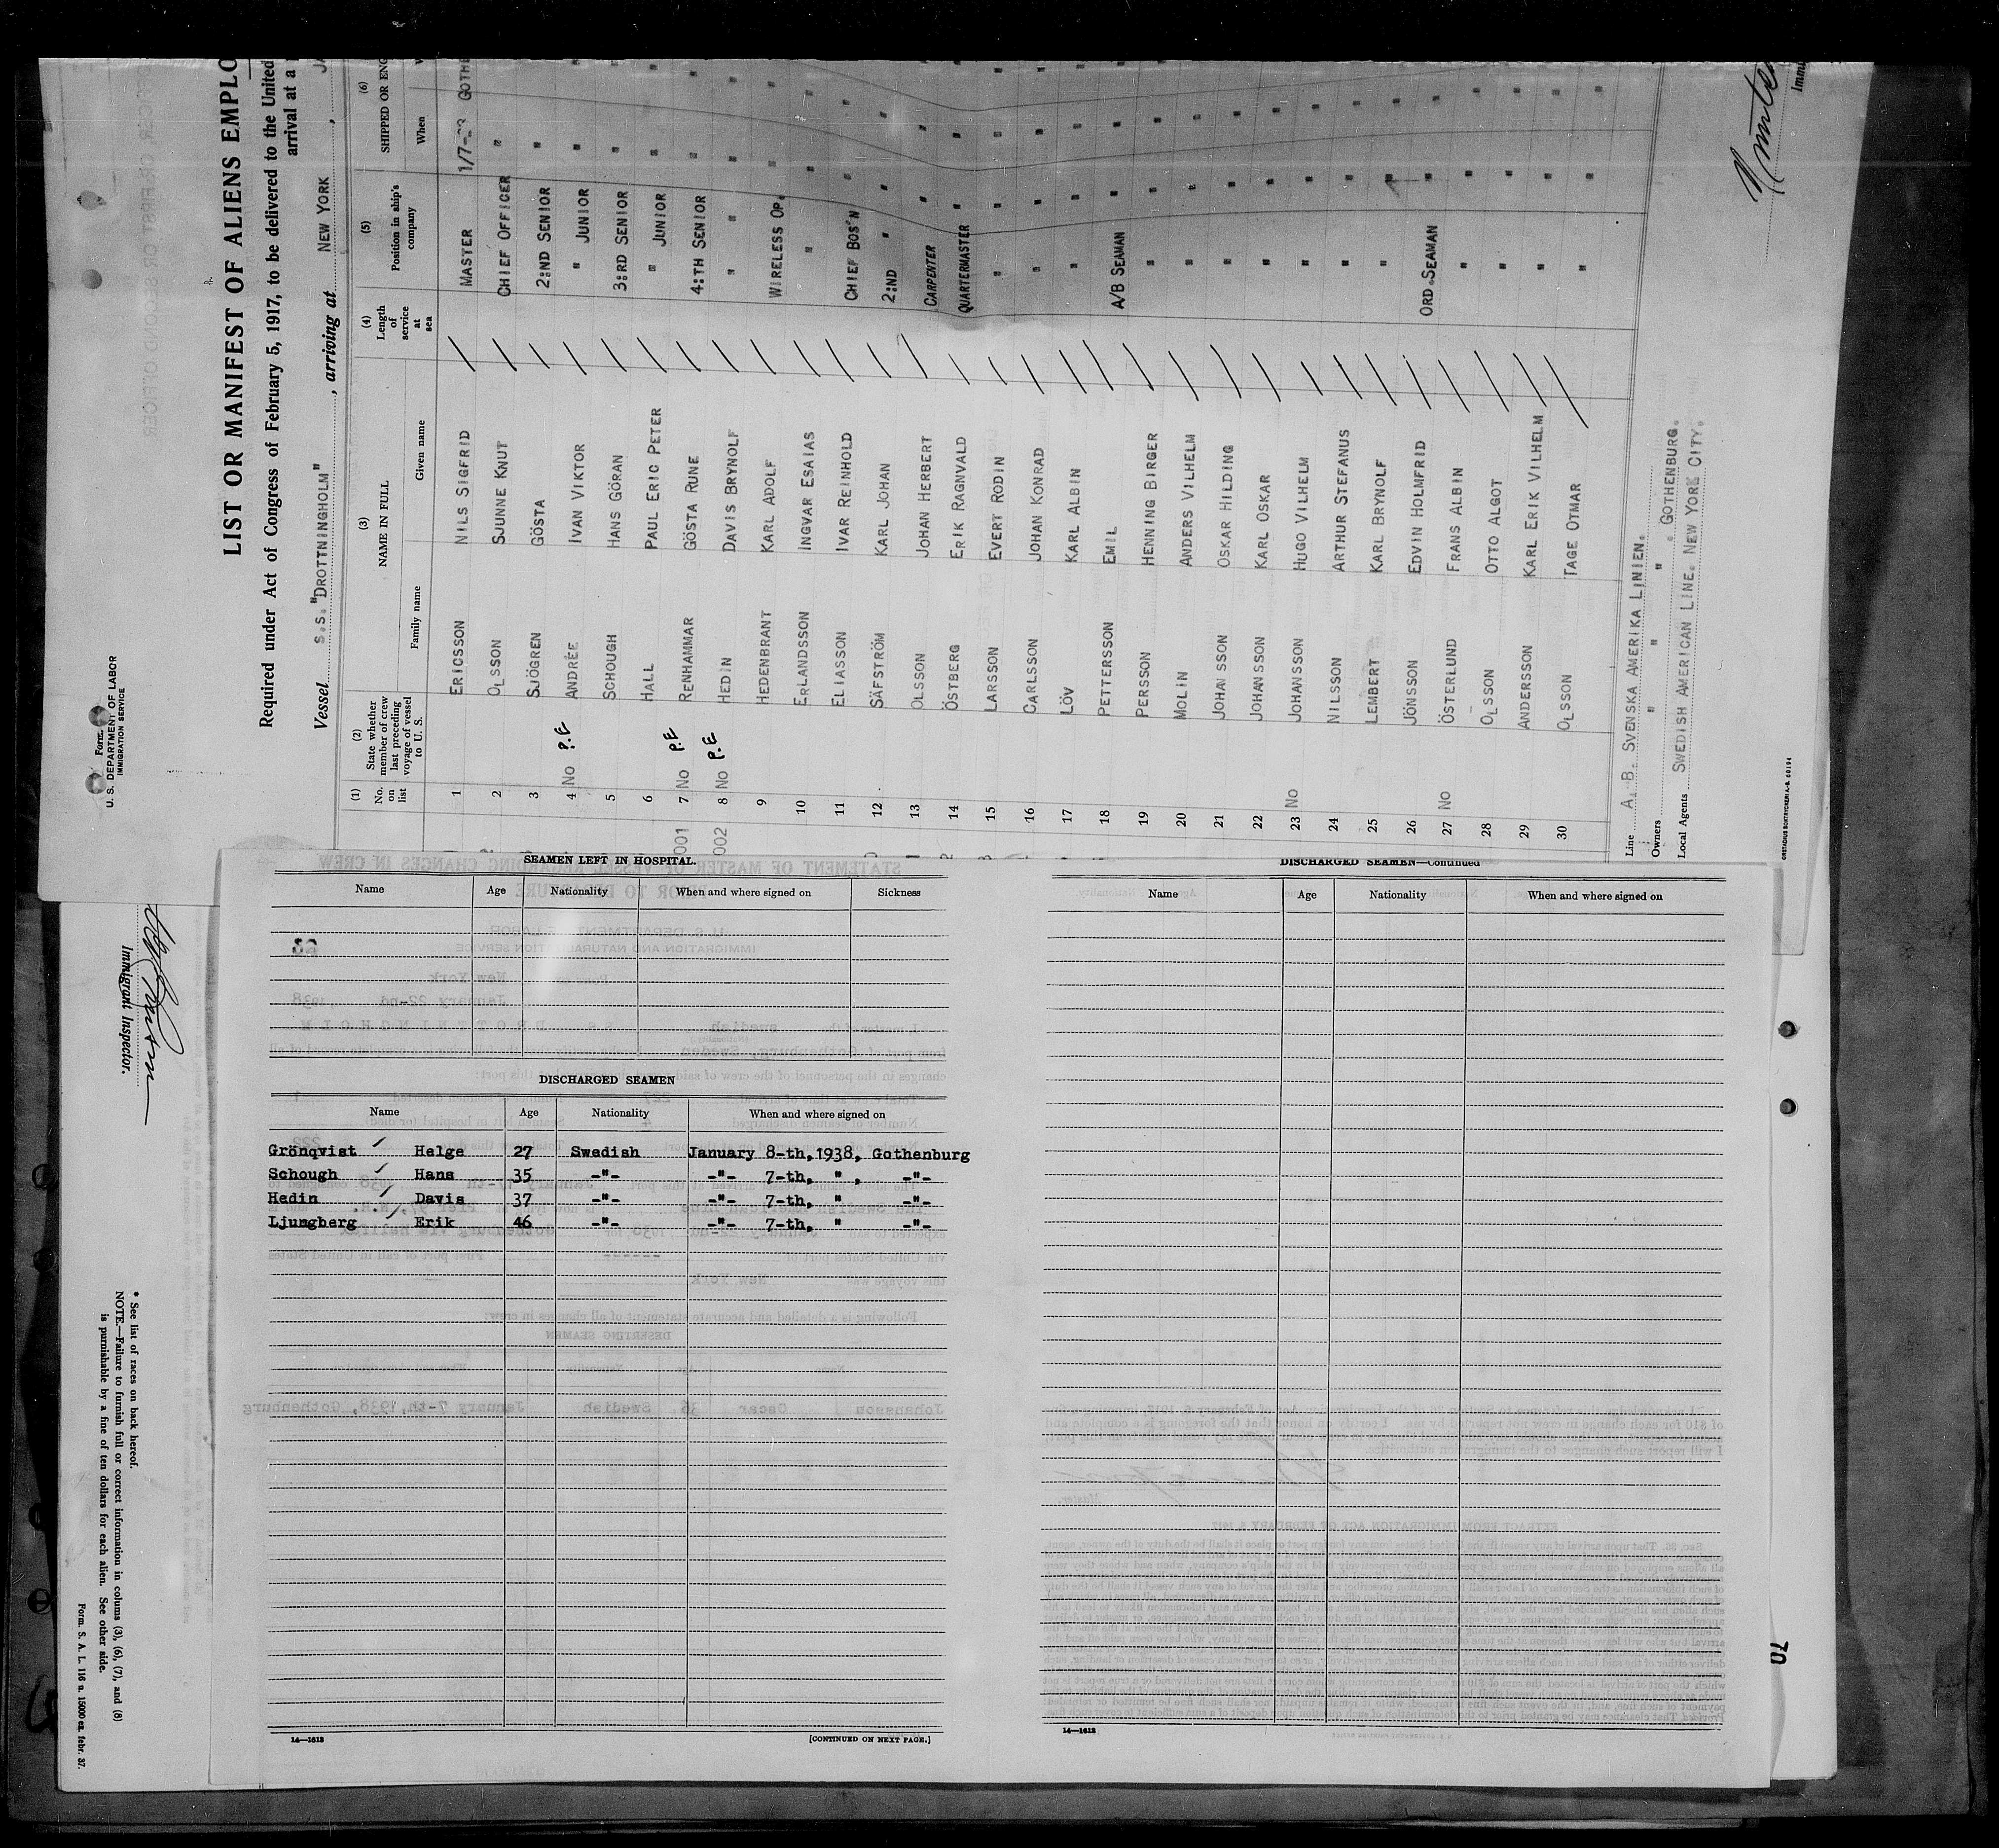 Form
U. S. DEPARTMENT OF LABOR
IMMIGRATION SERVICE
LIST OR MANIFEST OF ALIENS EMPLO
Required under Act of Congress of February 5, 1917, to be delivered to the United
arrival at a
Vessel S.S. "DROTTNINGHOLM" , arriving at NEW YORK ,
(1) (2) (3) (4) (5) (6)
No. on list
State whether member of crew last preceding voyage of vessel to U. S.
NAME IN FULL
Family name Given name
Length of service at sea
Position in ship's company
SHIPPED OR ENG
When
1 ERICSSON NILS SIGFRID MASTER 1/7- GOTHE
2 OLSSON SJUNNE KNUT CHIEF OFFICER "
3 SJÖGREN GÖSTA 2:ND SENIOR "
4 No P.E ANDRÉE IVAN VIKTOR " JUNIOR "
5 SCHOUGH HANS GÖRAN 3:RD SENIOR "
6 HALL PAUL ERIC PETER " JUNIOR "
001 7 No P.E RENHAMMAR GÖSTA RUNE 4:TH SENIOR "
002 8 No P.E HEDIN DAVIS BRYNOLF " " "
9 HEDENBRANT KARL ADOLF WIRELESS OP. "
10 ERLANDSSON INGVAR ESAIAS " "
11 ELIASSON IVAR REINHOLD CHIEF BOS'N "
12 SÄFSTRÖM KARL JOHAN 2:ND " "
13 OLSSON JOHAN HERBERT CARPENTER "
14 ÖSTBERG ERIK RAGNVALD QUARTERMASTER "
15 LARSSON EVERT RODIN " "
16 CARLSSON JOHAN KONRAD " "
17 LÖV KARL ALBIN " "
18 PETTERSSON EMIL A/B SEAMAN "
19 PERSSON HENNING BIRGER " "
20 MOLIN ANDERS VILHELM " "
21 JOHANSSON OSKAR HILDING " "
22 JOHANSSON KARL OSKAR " "
23 No JOHANSSON HUGO VILHELM " "
24 NILSSON ARTHUR STEFANUS " "
25 LEMBERT KARL BRYNOLF " "
26 JÖNSSON EDVIN HOLMFRID ORD.SEAMAN "
27 No ÖSTERLUND FRANS ALBIN " "
28 OLSSON OTTO ALGOT " "
29 ANDERSSON KARL ERIK VILHELM " "
30 OLSSON TAGE OTMAR " "
Line A. B. SVENSKA AMERIKA LINIEN.
Owners " " " . GOTHENBURG.
Local Agents SWEDISH AMERICAN LINE. NEW YORK CITY.
Immigrant Inspector.
* See list of races on back hereof.
NOTE.—Failure to furnish full or correct information in colums (3), (6), (7), and (8)
is punishable by a fine of ten dollars for each alien. See other side.
Form. S. A. L. 116 n. 15000 ex. febr. 37.
SEAMEN LEFT IN HOSPITAL.
Name Age Nationality When and where signed on Sickness
DISCHARGED SEAMEN
Name Age Nationality When and where signed on
Grönqvist Helge 27 Swedish January 8-th, 1938, Gothenburg
Schough Hans 35 -"- -"- 7-th, " , -"-
Hedin Davis 37 -"- -"- 7-th, " -"-
Ljungberg Erik 46 -"- -"- 7-th, " -"-
14—1613 [CONTINUED ON NEXT PAGE.]
DISCHARGED SEAMEN—Continued
Name Age Nationality When and where signed on
14—1613
70